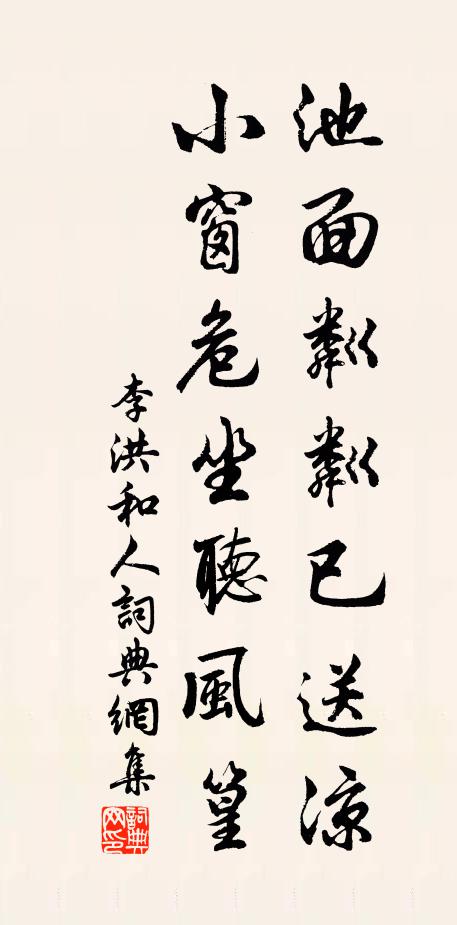 池面粼粼已送涼
小窗危坐聽風篁
李洪和人詞典網集
詞典网印